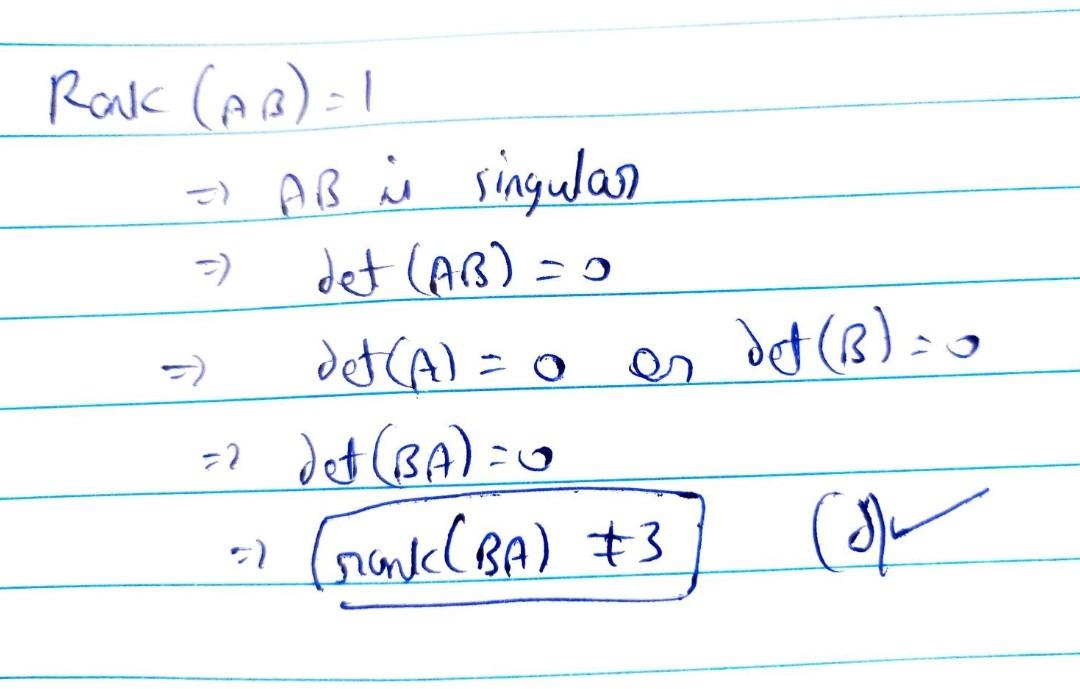 Rank (AB) = 1
=) AB is singular
=) det (AB) = 0
=) det(A) = 0 or det(B) = 0
=) det(BA) = 0
=) rank(BA) ≠ 3 (d) ✓